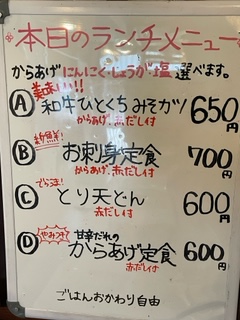 本日のランチメニュー
からあげ にんにく・しょうが・塩 選べます。
美味い!!
A 和牛ひとくちみそカツ 650円
からあげ、赤だし付
新鮮!
B お刺身定食 700円
からあげ、赤だし付
でらうま!
C とり天どん 600円
赤だし付
やみつき 甘辛だれの
D からあげ定食 600円
赤だし付
ごはんおかわり自由